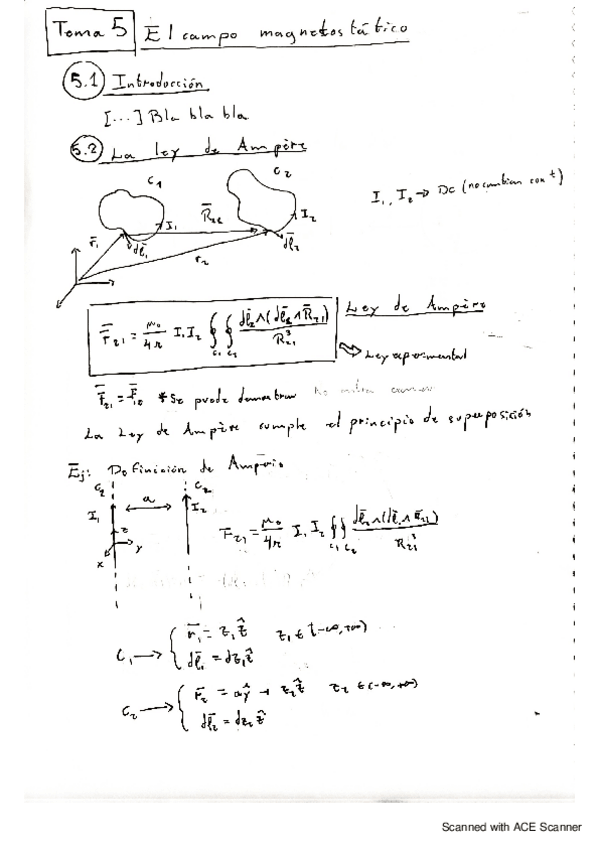 Tema 5 El campo magnetostático
5.1 Introducción
[...] Bla bla bla
5.2 La ley de Ampère
C1 C2
I1, I2 → DC (no cambian con t)
R̄21 I1 I2
r̄1 dℓ̄1 r2 dℓ̄2
F̄21 = μ0/4π I1 I2 ∮C1 ∮C2 dℓ̄2∧(dℓ̄2∧R̄21)/R³21 Ley de Ampère
Ley experimental
F̄21 = F̄12 *Se puede demostrar No entra examen
La Ley de Ampère cumple el principio de superposición
Ej: Definición de Amperio
C2 a C2
I1 I2
z y x
F21 = μ0/4π I1 I2 ∮C1 ∮C2 dℓ̄2∧(dℓ̄1∧R̄21)/R³21
C1 → { r̄1 = z1 ẑ z1 ∈ (-∞,+∞)
dℓ̄1 = dz1 ẑ
C2 → { r̄2 = aŷ + z2 ẑ z2 ∈ (-∞,+∞)
dℓ̄2 = dz2 ẑ
Scanned with ACE Scanner